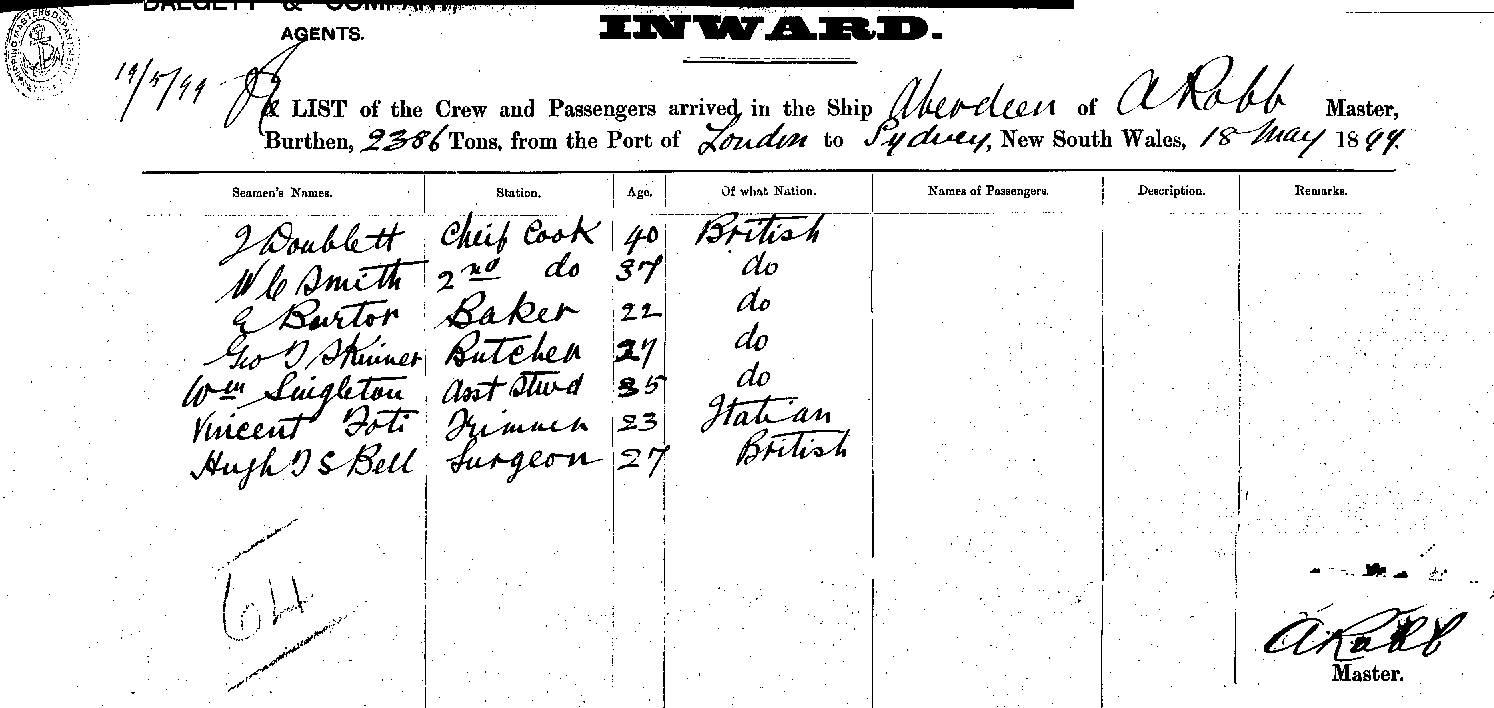 DALGETY & COMPANY
AGENTS.
INWARD.
19/5/99
A LIST of the Crew and Passengers arrived in the Ship Aberdeen of A Robb Master,
Burthen, 2386 Tons, from the Port of London to Sydney, New South Wales, 18 May 1899.
Seamen's Names. Station. Age. Of what Nation. Names of Passengers. Description. Remarks.
J Doublett Cheif Cook 40 British
W C Smith 2nd do 37 do
E Burtor Baker 22 do
Geo T Skinner Butcher 27 do
Wm Singleton Asst Stwd 35 do
Vincent Foti Trimmer 23 Italian
Hugh T S Bell Surgeon 27 British
64
A Robb
Master.